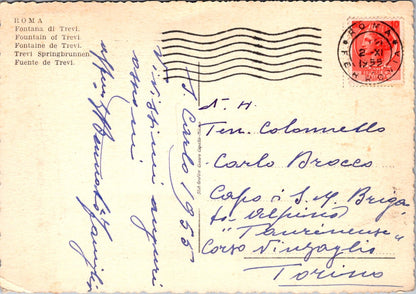 ROMA
Fontana di Trevi.
Fountain of Trevi.
Fontaine de Trevi.
Trevi Springbrunnen
Fuente de Trevi.
ROMA
2-XI
1955
S. Carlo 1955
vivissimi auguri
N. H.
Ten. Colonnello
Carlo Brocco
Capo i S. M. Briga
ta Alpina
"Taurinense"
Corso Vinzaglio
Torino